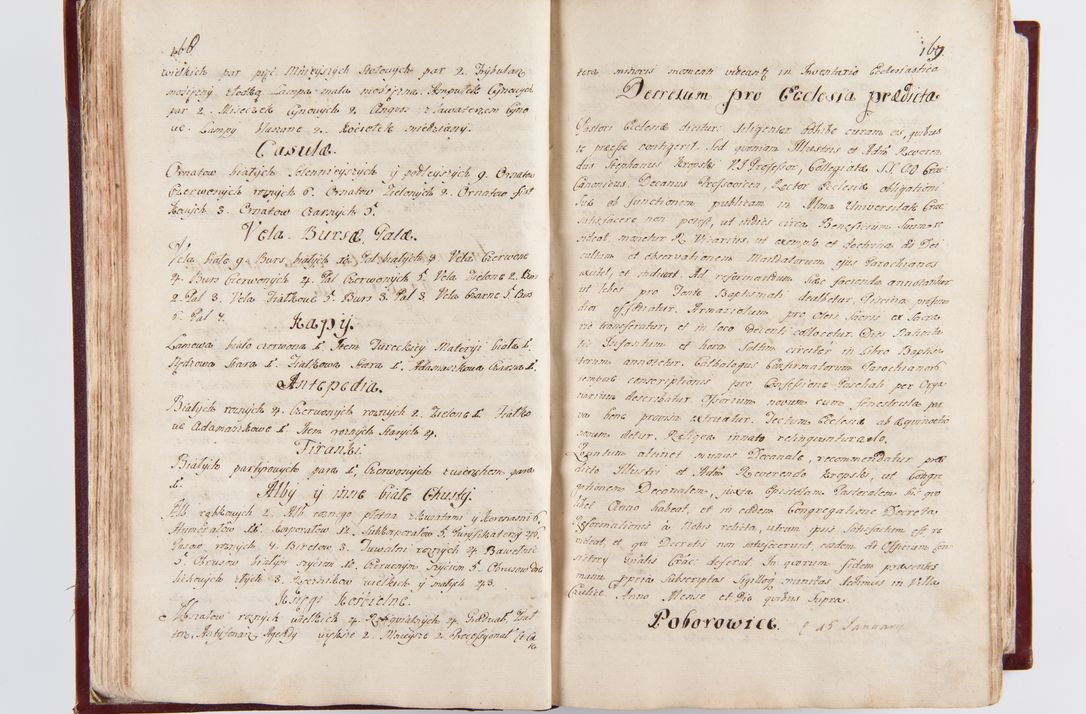 168
wielkich par pięć Mnieyszych Stołowych par 2. Trybularz
mosiężny z łodką Lampa mała mosiężna. Ampułek Cynowych
par 2. Miseczek Cynowych 2. Cyno
we Lampy blaszane 2. Kociołek miedziany.
Casulæ.
Ornatow białych Solennieyszych y podleyszych 9. Ornatow
Czerwonych roznych 6. Ornatow Zielonych 2. Ornatow Fioł
kowych 3. Ornatow Czarnych 5.
Vela. Bursæ, Palæ.
Vela białe 9. Burs białych Pal białych 9 Vela Czerwone
4. Burs Czerwonych 4. Pal Czerwonych 5. Vela Zielone 2. Burs
2. Pal 3. Vela Fiałkowe 5. Burs 3. Pal 3. Vela Czarne 5. Burs
5. Pal 4.
Kapy.
Lamowa biało czerwona 1. Item Tureckiey Materyi biała 1.
Stara 1. Fiałkowa Stara 1. Adamaszkowa Czarna 1.
Antepedia.
Białych roznych 4. Czerwonych roznych 2. Zielone 1. Fiałko
we Adamaszkowe 1. Item roznych Starych 4.
Firanki.
Białych partyiowych para 1. Czerwonych para
1.
Alby y inne białe Chusty.
Alb rąbkowych 2. Alb roznego płotna z kwiatami y Koronami 6.
Humerałow 12. Korporałow 12. Subkorporałow 5. Puryfikaterzy 40.
Pasow roznych 4. Biretow 3. Tuwalni roznych 4. Bawełnic
5. Obrusow białym szyciem 10. Czerwonym szyciem 5. Obrusow
3. Ręcznikow wielkich y małych 23.
Księgi Kościelne.
Mszałow roznych wielkich 4. Rekwialnych 4. Graduał 1. Psał
terz, Antyfonarz Agendy większe 2. Mnieysze 2. Processyonał
169.
tera minoris momenti videantur in Inventario Ecclesiastico
Decretum pro Ecclesia prædicta
Pastori Ecclesiæ dicitur: diligenter adhibe curam eis, quibus
te præesse contigerit. Sed quoniam Illustris et Adm Reveren
dus Stephanus Krepski V. J. Professor, Collegiatæ SS. OO Crac
Canonicus, Decanus Proszovicen, Rector Ecclesiæ obligationi
suæ ob functionem publicam in Alma Universitate Crac
satisfacere non potest, ut circa Beneficium suum re
sideat, monetur R. Vicarius, ut exemplo et doctrina ad Dei
cultum et observationem Mandatorum ejus Parochianos
excitet, et inducat. Ad reformandum sic faciendo annotandur
ut lebes pro Fonte Baptismali dealbetur, Piscina profun
dior effodiatur. Armariolum pro Oleis Sacris ex Sacra
rii transferatur, et in loco decenti collocetur. Dies Nativita
tis Infantum et hora saltim circiter in Libro Baptisa
torum annotetur. Cathalogus Confirmatorum Parochianor
tempore conscriptionis pro Confessione Paschali per Orga
narium describatur. Ossorium novum cum fenestrula par
va bene provisa extruatur. Tectum Ecclesiæ ab æquinoctio
novum detur. Reliqua innato relinquuntur zelo.
Quantum attinet munus Decanale, recommendatur præ
dicto Illustri et Adm Reverendo Krepski, ut Congre
gationem Decanalem, juxta Epistolam Pastoralem hic quo
libet Anno habeat, et in eadem Congregatione Decreta
Reformationis à Nobis relicta, utrum ipsis satisfactum est, re
videat, et qui Decretis non intescerunt, eosdem ad Officium Con
sistory Gnalis Crac deferat. In quorum fidem præsentes
manu ppria subscriptas Sigilloq munitas dedimus in Villa
Anno Mense et Die quibus Supra.
Poborowice. 15 January